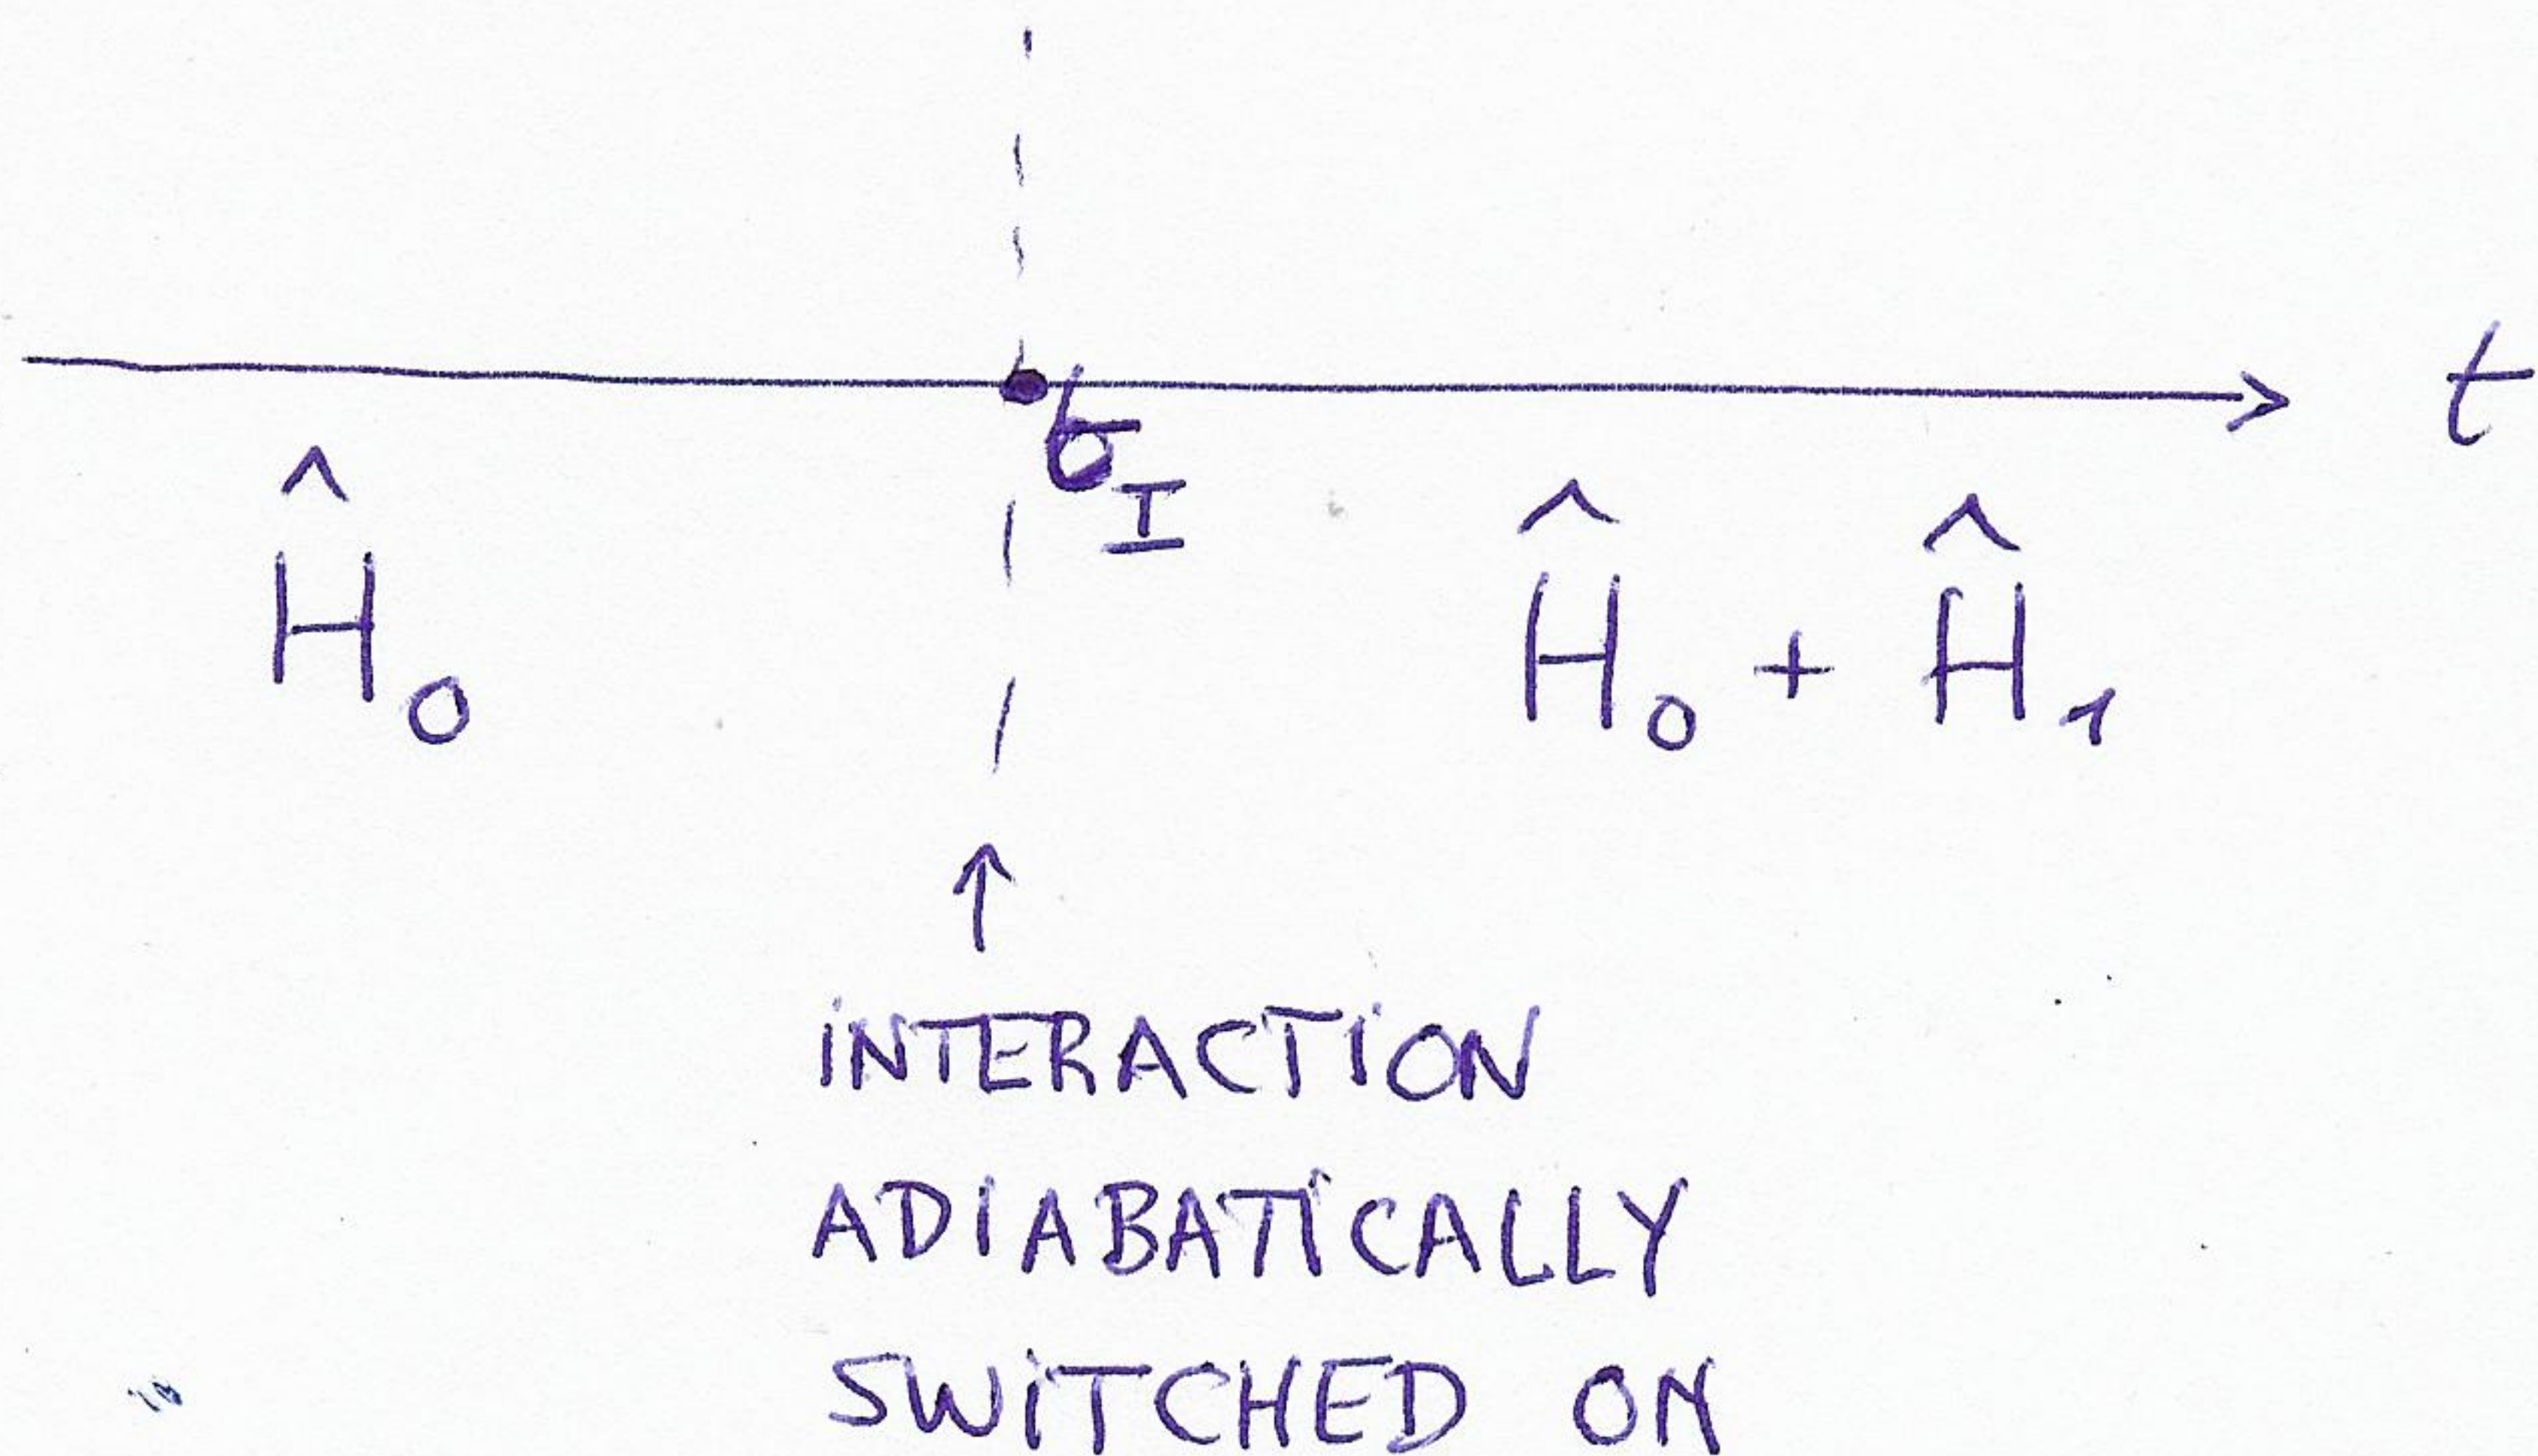 t
t_I
Ĥ_0
Ĥ_0 + Ĥ_1
INTERACTION
ADIABATICALLY
SWITCHED ON